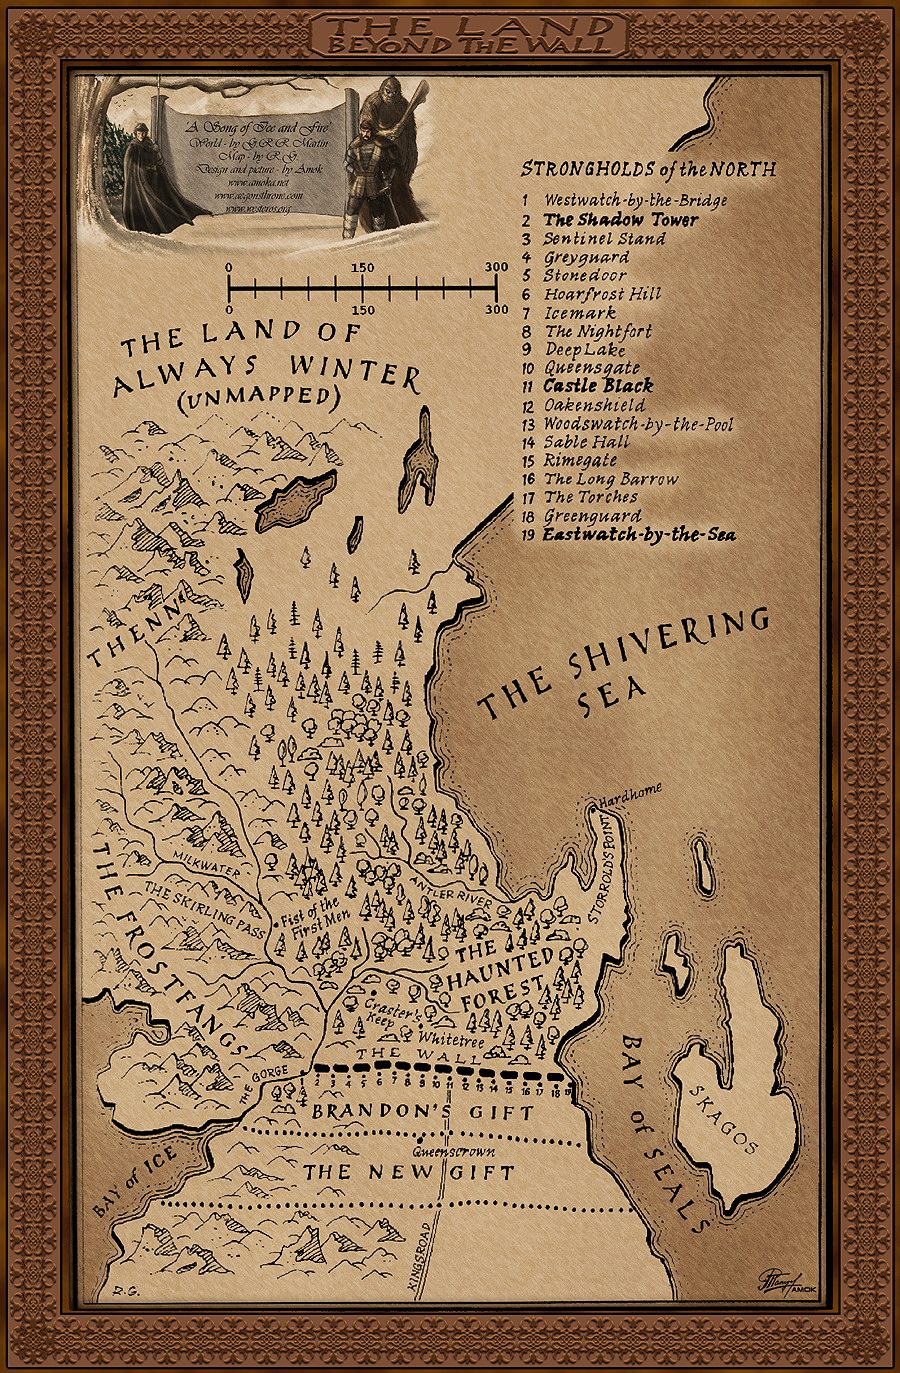 THE LAND
BEYOND THE WALL
'A Song of Ice and Fire'
World - by G.R.R. Martin
Map - by R.G.
Design and picture - by Amok
www.amoka.net
www.aegonsthrone.com
www.westeros.org
STRONGHOLDS of the NORTH
1 Westwatch-by-the-Bridge
2 The Shadow Tower
3 Sentinel Stand
4 Greyguard
5 Stonedoor
6 Hoarfrost Hill
7 Icemark
8 The Nightfort
9 Deep Lake
10 Queensgate
11 Castle Black
12 Oakenshield
13 Woodswatch-by-the-Pool
14 Sable Hall
15 Rimegate
16 The Long Barrow
17 The Torches
18 Greenguard
19 Eastwatch-by-the-Sea
0 150 300
0 150 300
THE LAND OF
ALWAYS WINTER
(UNMAPPED)
THENN
THE SHIVERING
SEA
Hardhome
STORROLD'S POINT
MILKWATER
THE SKIRLING PASS
ANTLER RIVER
Fist of the
First Men
THE FROSTFANGS
THE
HAUNTED
FOREST
Craster's
Keep
Whitetree
THE WALL
THE GORGE
1 2 3 4 5 6 7 8 9 10 11 12 13 14 15 16 17 18 19
BRANDON'S GIFT
Queenscrown
THE NEW GIFT
KINGSROAD
BAY of ICE
BAY of SEALS
SKAGOS
R.G.
AMOK